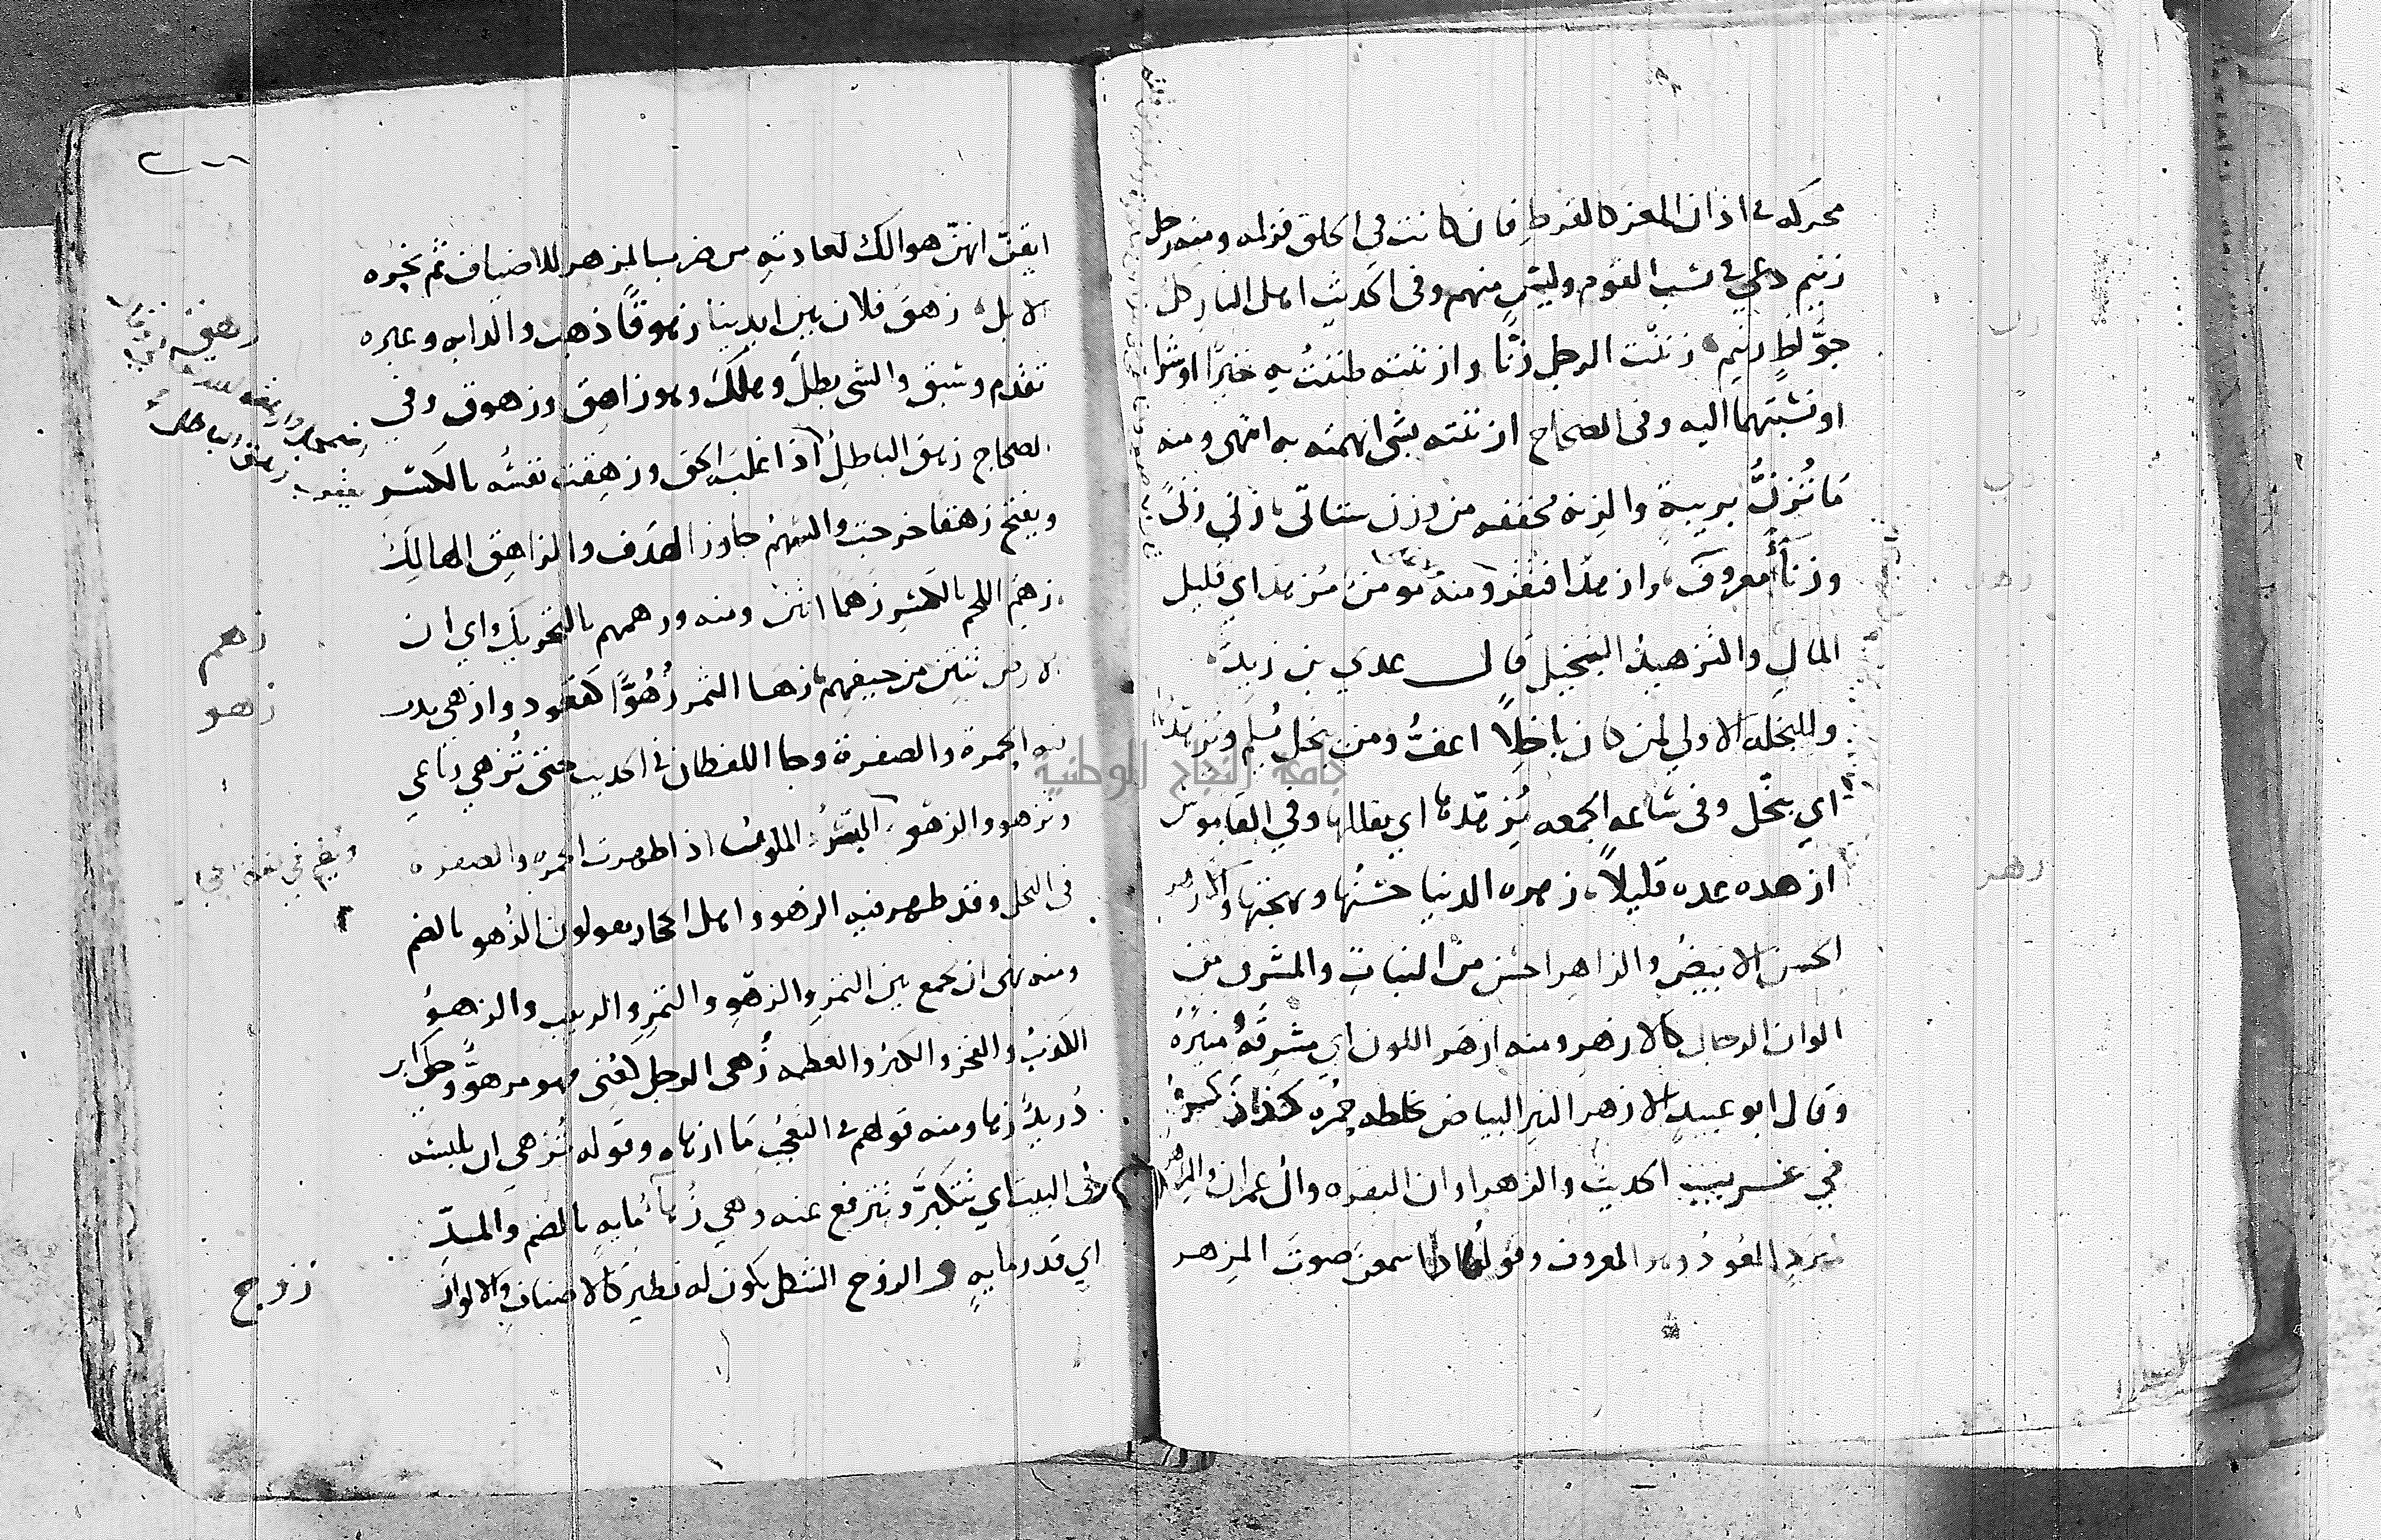 محركه في اذان المعز كالقرط فان كانت في الحلق فزلمه ومنه رجل
زنيم دعي في نسب القوم وليس منهم وفي الحديث اهل النار كل
جوّاظ زنيم زننت الرجل زنًّا وازننته ظننت به خيرًا او شرا
او نسبتهما اليه وفي الصحاح ازننته بشي اتهمته به انتهى ومنه
مَا تُزَنُّ بريبةٍ والزنه مخففه من وزن ستاتى زني زنًى
وزنآءً معروف وازهد افتقر ومنه مومن مُزهد اي قليل
المالِ والتزهيدُ التبخيل قال عدي بن زيد
وللبخلة الاولي لمن كان باخلاً اعفُّ ومن يبخل يُلَم ويُزهّدِ
اي يبخّل وفي ساعه الجمعه يُزهّدها اي يقللها وفي القاموس
ازهده عده قليلاً زهره الدنيا حسنُها وبهجتها والازهر
الحسن الابيضُ والزاهر احسن من النباتِ والمشرق من
الوان الرجال كالازهر ومنه ازهَر اللون اي مشرقُهُ منيّرُهُ
وقال ابو عبيد الازهر النير البياض يخلطه حُمره كذا ذكره
في غريب الحديث والزهراوان البقره وآل عمران والمِزهر
العُود وهو المعروف وقولها اذا سمعن صوتَ المِزهر
٢٠٦
ايقنّ انهنّ هوالك لعادته من ضرب المزهر للاضياف ثم نحره
الابل زهق فلان بين ايدينا زهوقًا ذهب والدابه وغيره
تقدم وسبق والشي بطل وهلك وهو زاهق وزهوق وفي
الصحاح زهق الباطل اذا غلبه الحق وزهِقت نفسُه بالكسر
ويفتح زهقا خرجت والسّهمُ جاوز الهدف والزاهق الهالِكُ
زهق
زهِمَ اللحم بالكسر زَهمًا انتن ومنه وزهمهم بالتحريك اي ان
زهم
الارض تنتن من جيفهم زهَا الثمر زُهُوًّا كقعود وازهى بدت
زهو
فيه الحمره والصفرة وجا اللفظان في الحديث حتى تُزهي رباعي
وتزهو والزهو البُسْرُ الملوّن اذا ظهرت الحمره والصفره
في النخل وقد ظهر فيه الزهو واهل الحجاز يقولون الزُهو بالضم
ومنه نهى ان يجمع بين التمرِ والزهوِ والتمرِ والزبيب والزهوُ
الكذبُ والفخر والكبرُ والعظمه زُهى الرجل كعُنى فهو مزهوٌّ وحكى ابن
دُريدٍ زها ومنه قولهم في التعجُبِ مَا ازهاه وقوله تُزهي ان تلبسَه
في البيت اي تتكبّر وتترفع عنه وهي زُهآءُ مايهٍ بالضم والمدّ
اي قدر مايهٍ والزوج الشكل يكون له نظيرٌ كالاصنافِ والالوان
زوج
جامعة النجاح الوطنية